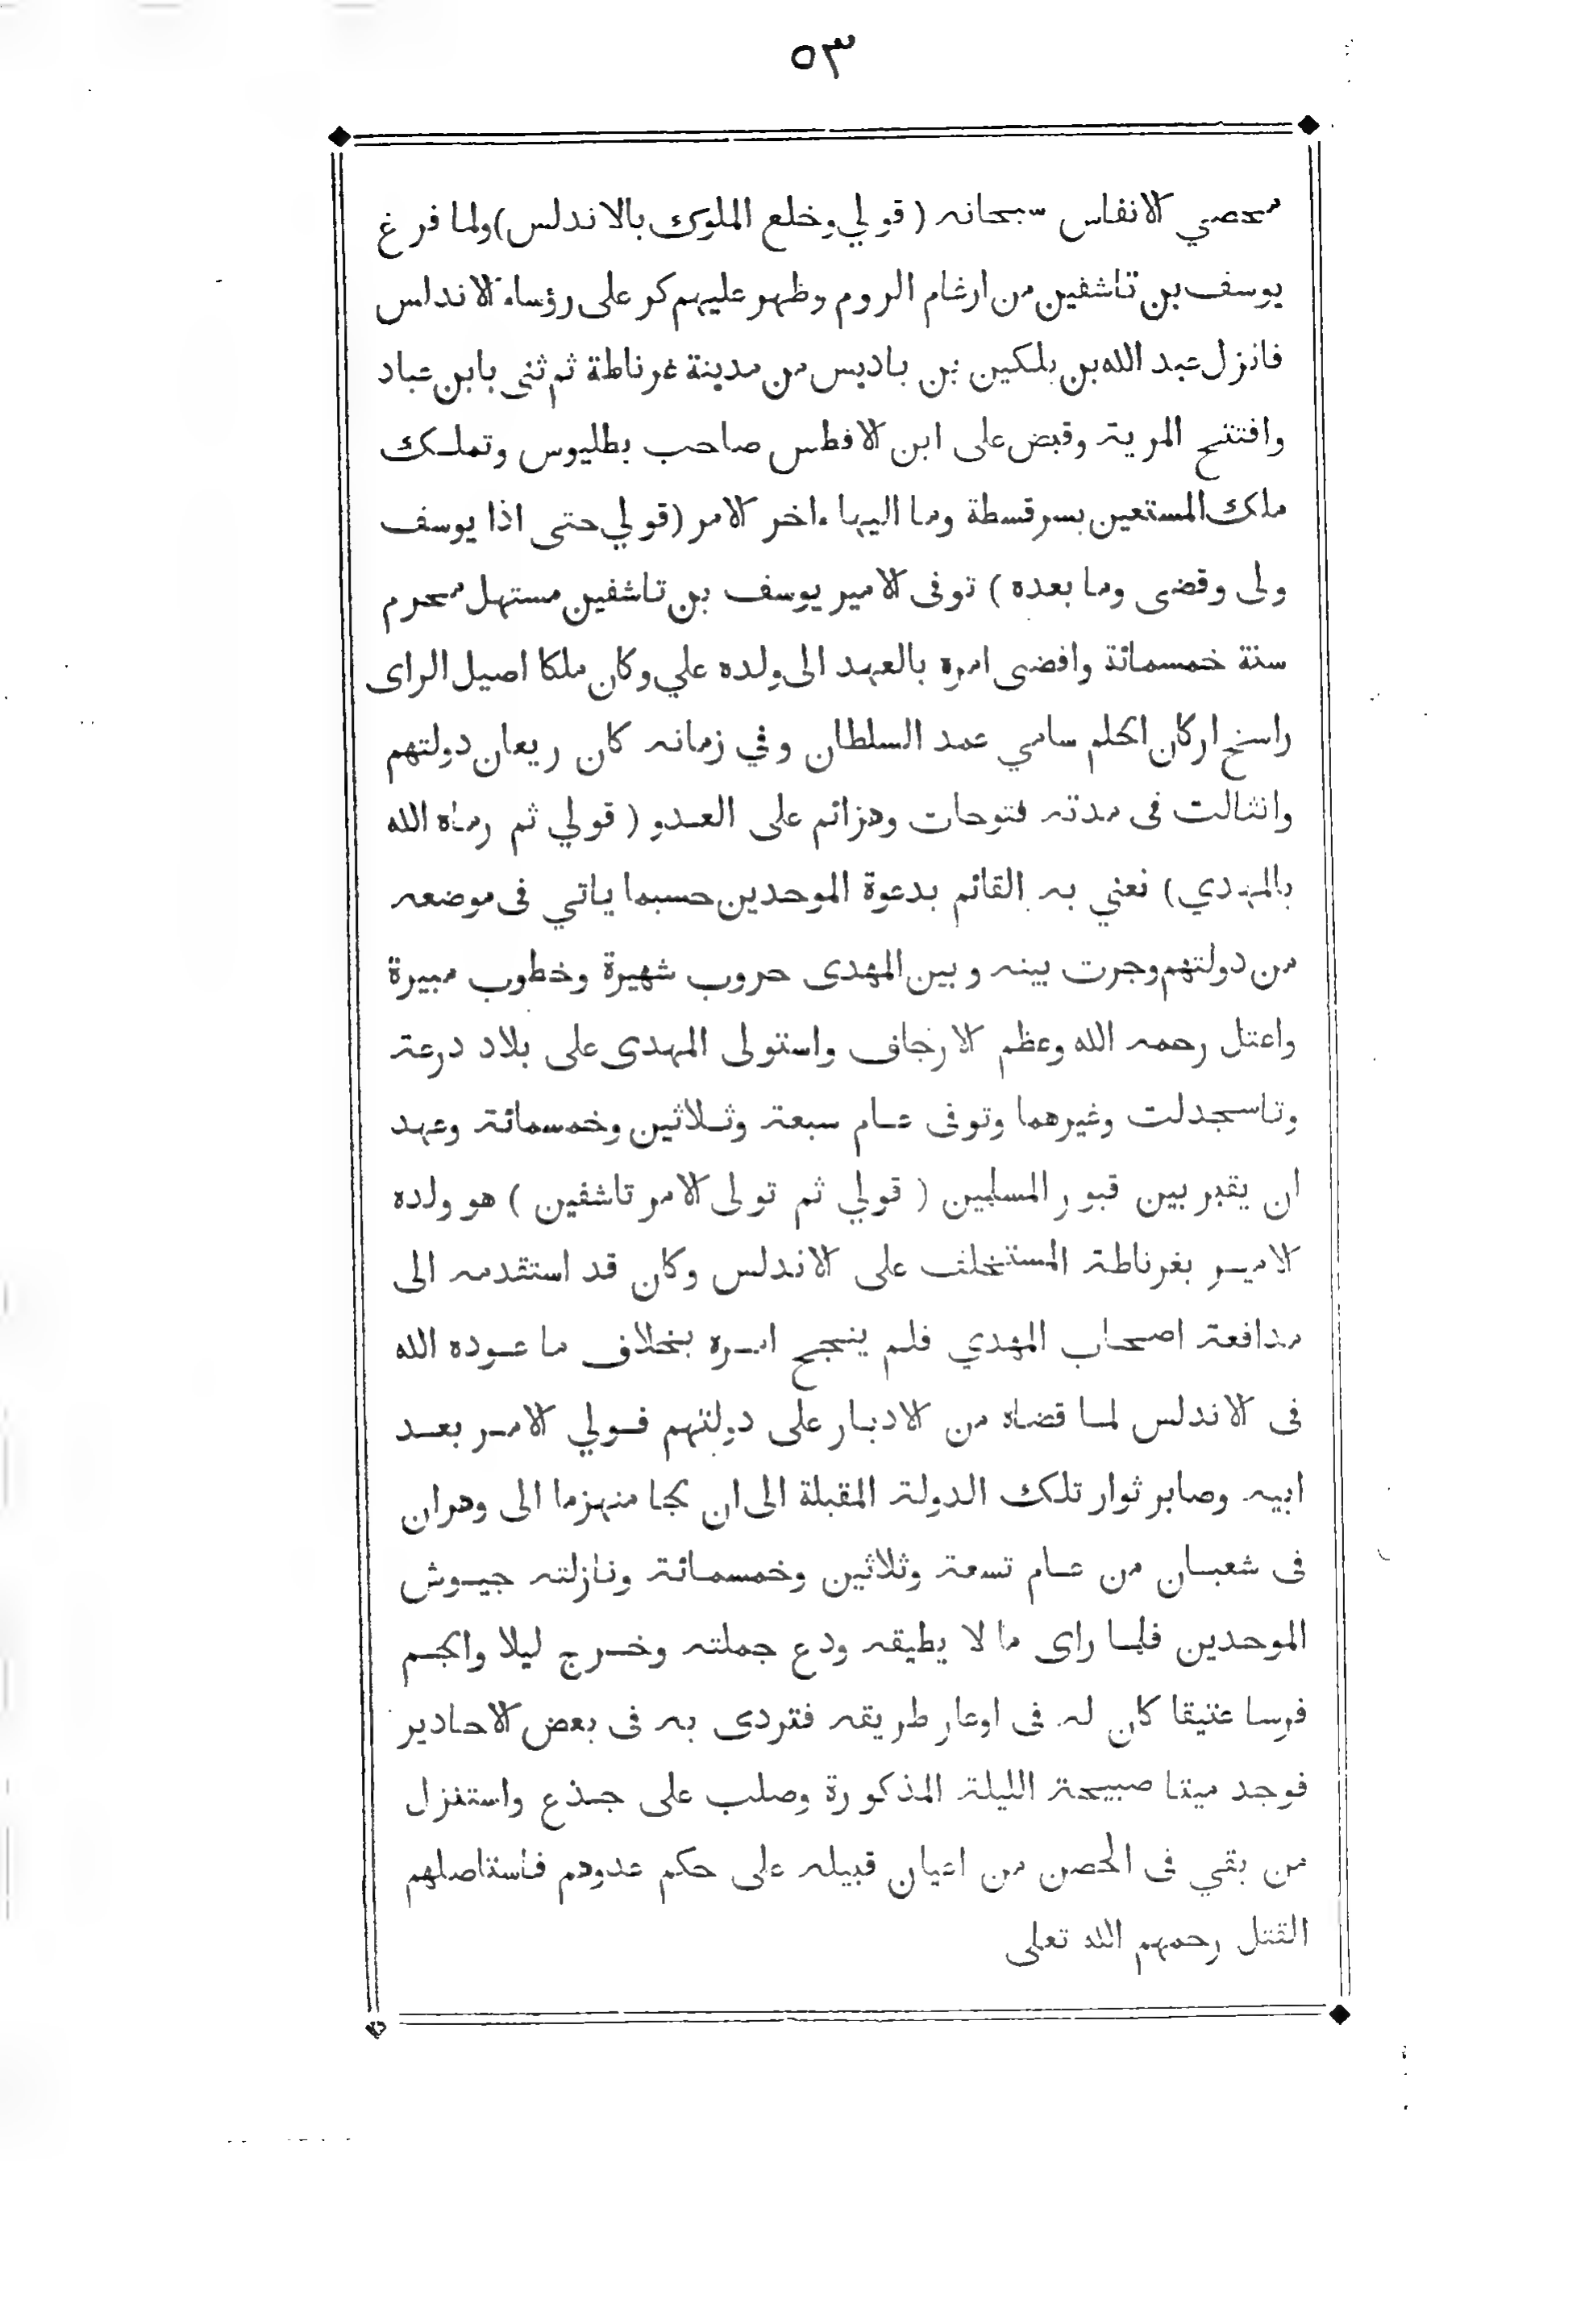 ٥٣
محصي الانفاس سبحانه ( قولي وخلع الملوك بالاندلس) ولما فرغ
يوسف بن تاشفين من ارغام الروم وظهر عليهم كر على رؤساء الاندلس
فانزل عبد الله بن بلكين بن باديس من مدينة غرناطة ثم ثنى بابن عباد
وافتتح المرية وقبض على ابن الافطس صاحب بطليوس وتملك
ملك المستعين بسرقسطة وما اليها ءاخر الامر (قولي حتى اذا يوسف
ولى وقضى وما بعده ) توفى الامير يوسف بن تاشفين مستهل محرم
سنة خمسمائة وافضى امره بالعهد الى ولده علي وكان ملكا اصيل الراى
راسخ اركان الحلم سامي عمد السلطان وفي زمانه كان ريعان دولتهم
وانثالت فى مدته فتوحات وهزائم على العدو ( قولي ثم رماه الله
بالمهدي) نعني به القائم بدعوة الموحدين حسبما ياتي فى موضعه
من دولتهم وجرت بينه وبين المهدى حروب شهيرة وخطوب مبيرة
واعتل رحمه الله وعظم الارجاف واستولى المهدى على بلاد درعة
وتاسجدلت وغيرهما وتوفى عام سبعة وثلاثين وخمسمائة وعهد
ان يقبر بين قبور المسلمين ( قولي ثم تولى الامر تاشفين ) هو ولده
الامير بغرناطة المستخلف على الاندلس وكان قد استقدمه الى
مدافعة اصحاب المهدي فلم ينجح امره بخلاف ما عوده الله
فى الاندلس لما قضاه من الادبار على دولتهم فولي الامر بعد
ابيه وصابر ثوار تلك الدولة المقبلة الى ان نجا منهزما الى وهران
فى شعبان من عام تسعة وثلاثين وخمسمائة ونازلته جيوش
الموحدين فلما راى ما لا يطيقه ودع جملته وخرج ليلا والجم
فرسا عتيقا كان له فى اوعار طريقه فتردى به فى بعض الاحادير
فوجد ميتا صبيحة الليلة المذكورة وصلب على جذع واستنزل
من بقي فى الحصن من اعيان قبيله على حكم عدوهم فاستاصلهم
القتل رحمهم الله تعلى